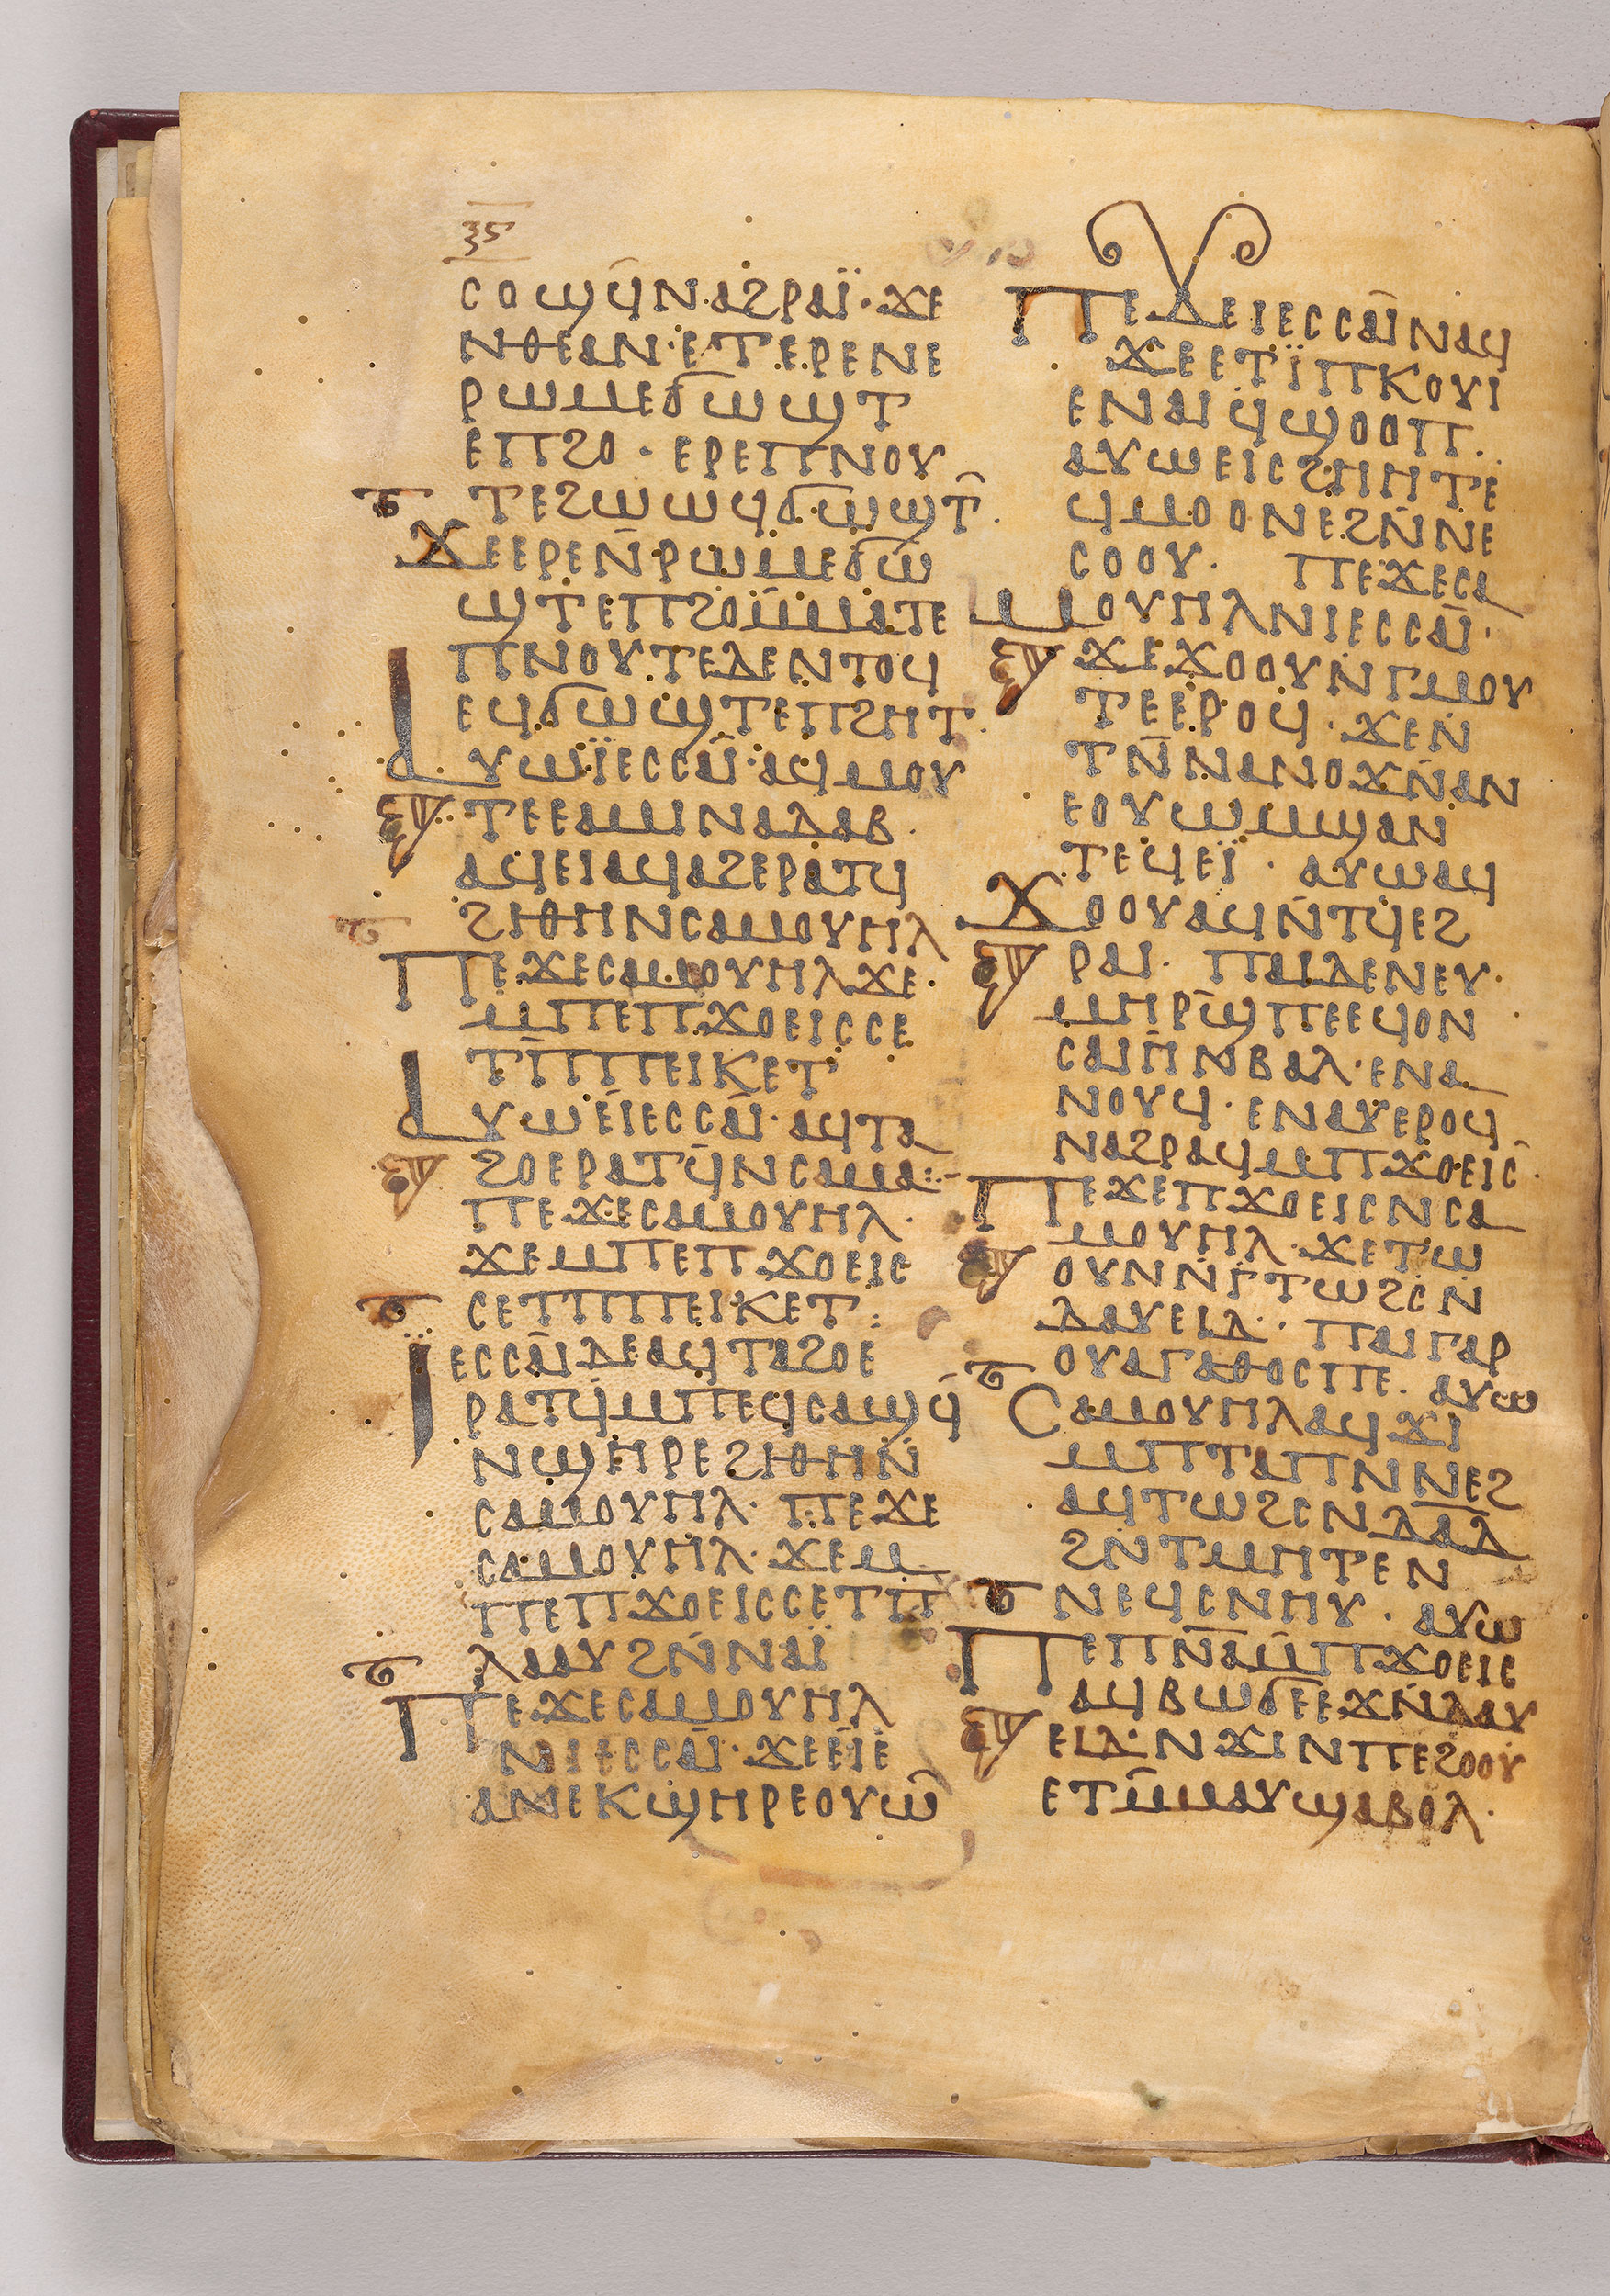 ⲝⲋ
ⲥⲟϣϥⲛⲁϩⲣⲁⲓ̈· ϫⲉ
ⲛⲑⲉⲁⲛ·ⲉⲧⲉⲣⲉⲛⲉ
ⲣⲱⲙⲉϭⲱϣⲧ
ⲉⲡϩⲟ· ⲉⲣⲉⲡⲛⲟⲩ
ⲧⲉϩⲱⲱϥϭⲱϣⲧ̄·
ϫⲉⲉⲣⲉⲛ̄ⲣⲱⲙⲉϭⲱ
ϣⲧⲉⲡϩⲟⲙ̄ⲙⲁⲧⲉ
ⲡⲛⲟⲩⲧⲉⲇⲉⲛⲧⲟϥ
ⲉϥϭⲱϣⲧⲉⲡϩⲏⲧ·
ⲁⲩⲱⲓ̈ⲉⲥⲥⲁⲓ̈·ⲁϥⲙⲟⲩ
ⲧⲉⲉⲁⲙⲓⲛⲁⲇⲁⲃ·
ⲁϥⲉⲓⲁϥⲁϩⲉⲣⲁⲧϥ
ϩⲓⲑⲏⲛⲥⲁⲙⲟⲩⲏⲗ
ⲡⲉϫⲉⲥⲁⲙⲟⲩⲏⲗϫⲉ·
ⲙⲡⲉⲡϫⲟⲉⲓⲥⲥⲉ
ⲧⲡ̄ⲡⲉⲓⲕⲉⲧ
ⲁⲩⲱⲉⲓ̈ⲉⲥⲥⲁⲓ̈·ⲁϥⲧⲁ
ϩⲟⲉⲣⲁⲧϥ̄ⲛⲥⲁⲙⲁ·:·
ⲡⲉϫⲉⲥⲁⲙⲟⲩⲏⲗ·
ϫⲉⲙⲡⲉⲡϫⲟⲉⲓⲥ
ⲥⲉⲧⲡⲡⲉⲓⲕⲉⲧ:
ⲓ̈ⲉⲥⲥⲁⲓ̈ⲇⲉⲁϥⲧⲁϩⲟⲉ
ⲣⲁⲧϥ̄ⲙⲡⲉϥⲥⲁϣϥ̄
ⲛϣⲏⲣⲉϩⲓⲑⲏⲛ̄
ⲥⲁⲙⲟⲩⲏⲗ· ⲡⲉϫⲉ
ⲥⲁⲙⲟⲩⲏⲗ· ϫⲉⲙ
ⲡⲉⲡϫⲟⲉⲓⲥⲥⲉⲧⲡ
ⲗⲁⲁⲩϩⲛ̄ⲛⲁⲓ̈
ⲡⲉϫⲉⲥⲁⲙⲟⲩⲏⲗ
ⲛⲓⲉⲥⲥⲁⲓ̈· ϫⲉⲉⲓ̈ⲉ
ⲁⲛⲉⲕϣⲏⲣⲉⲟⲩⲱ̄
ⲡⲉϫⲉⲓⲉⲥⲥⲁⲓ̈ⲛⲁϥ
ϫⲉⲉⲧⲓ̈ⲡⲕⲟⲩⲓ
ⲉⲛⲁⲓϥϣⲟⲟⲡ·
ⲁⲩⲱⲉⲓⲥϩⲏⲏⲧⲉ
ϥⲙⲟⲟⲛⲉϩⲛ̄ⲛⲉ
ⲥⲟⲟⲩ· ⲡⲉϫⲉⲥⲁ
ⲙⲟⲩⲏⲗⲛⲓⲉⲥⲥⲁⲓ̈·
ϫⲉϫⲟⲟⲩⲛ̄ⲅⲙⲟⲩ
ⲧⲉⲉⲣⲟϥ· ϫⲉⲛ
ⲧⲛ̄ⲛⲁⲛⲟϫⲛ̄ⲁⲛ
ⲉⲟⲩⲱⲙϣⲁⲛ
ⲧⲉϥⲉⲓ̈· ⲁⲩⲱⲁϥ
ϫⲟⲟⲩⲁϥⲛ̄ⲧϥⲉϩ
ⲣⲁⲓ· ⲡⲁⲓⲇⲉⲛⲉⲩ·
ⲙⲏⲣϣ̄ⲡⲉⲉϥⲟⲛ
ⲥⲁⲓⲏⲛⲃⲁⲗ·ⲉⲛⲁ
ⲛⲟⲩϥ·ⲉⲛⲁⲩⲉⲣⲟϥ
ⲛⲁϩⲣⲁϥⲙⲡϫⲟⲉⲓⲥ·
ⲡⲉϫⲉⲡϫⲟⲉⲓⲥⲛⲥⲁ
ⲙⲟⲩⲏⲗ·ϫⲉⲧⲱ
ⲟⲩⲛⲛⲅ̄ⲧⲱϩⲥⲛ
ⲇⲁⲩⲉⲓⲇ· ⲡⲁⲓⲅⲁⲣ
ⲟⲩⲁⲅⲁⲑⲟⲥⲡⲉ· ⲁⲩⲱ
ⲥⲁⲙⲟⲩⲏⲗⲁϥϫⲓ
ⲙⲡⲧⲁⲡⲛⲛⲉϩ
ⲁϥⲧⲱϩⲥⲛⲇⲁⲇ
ϩⲛⲧⲙⲏⲧⲉⲛ
ⲛⲉϥⲥⲛⲏⲩ· ⲁⲩⲱ
ⲡⲉⲡⲛ̄ⲁⲙ̄ⲡϫⲟⲉⲓⲥ
ⲁϥⲃⲱϭⲉⲉϫⲛ̄ⲇⲁⲩ
ⲉⲓⲇ·ⲛϫⲓⲛⲡⲉϩⲟⲟⲩ
ⲉⲧⲙ̄ⲙⲁⲩϣⲁⲃⲟⲗ·